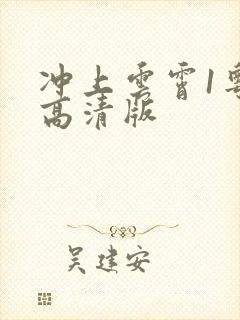 冲上云霄1粤
高清版
吴建安